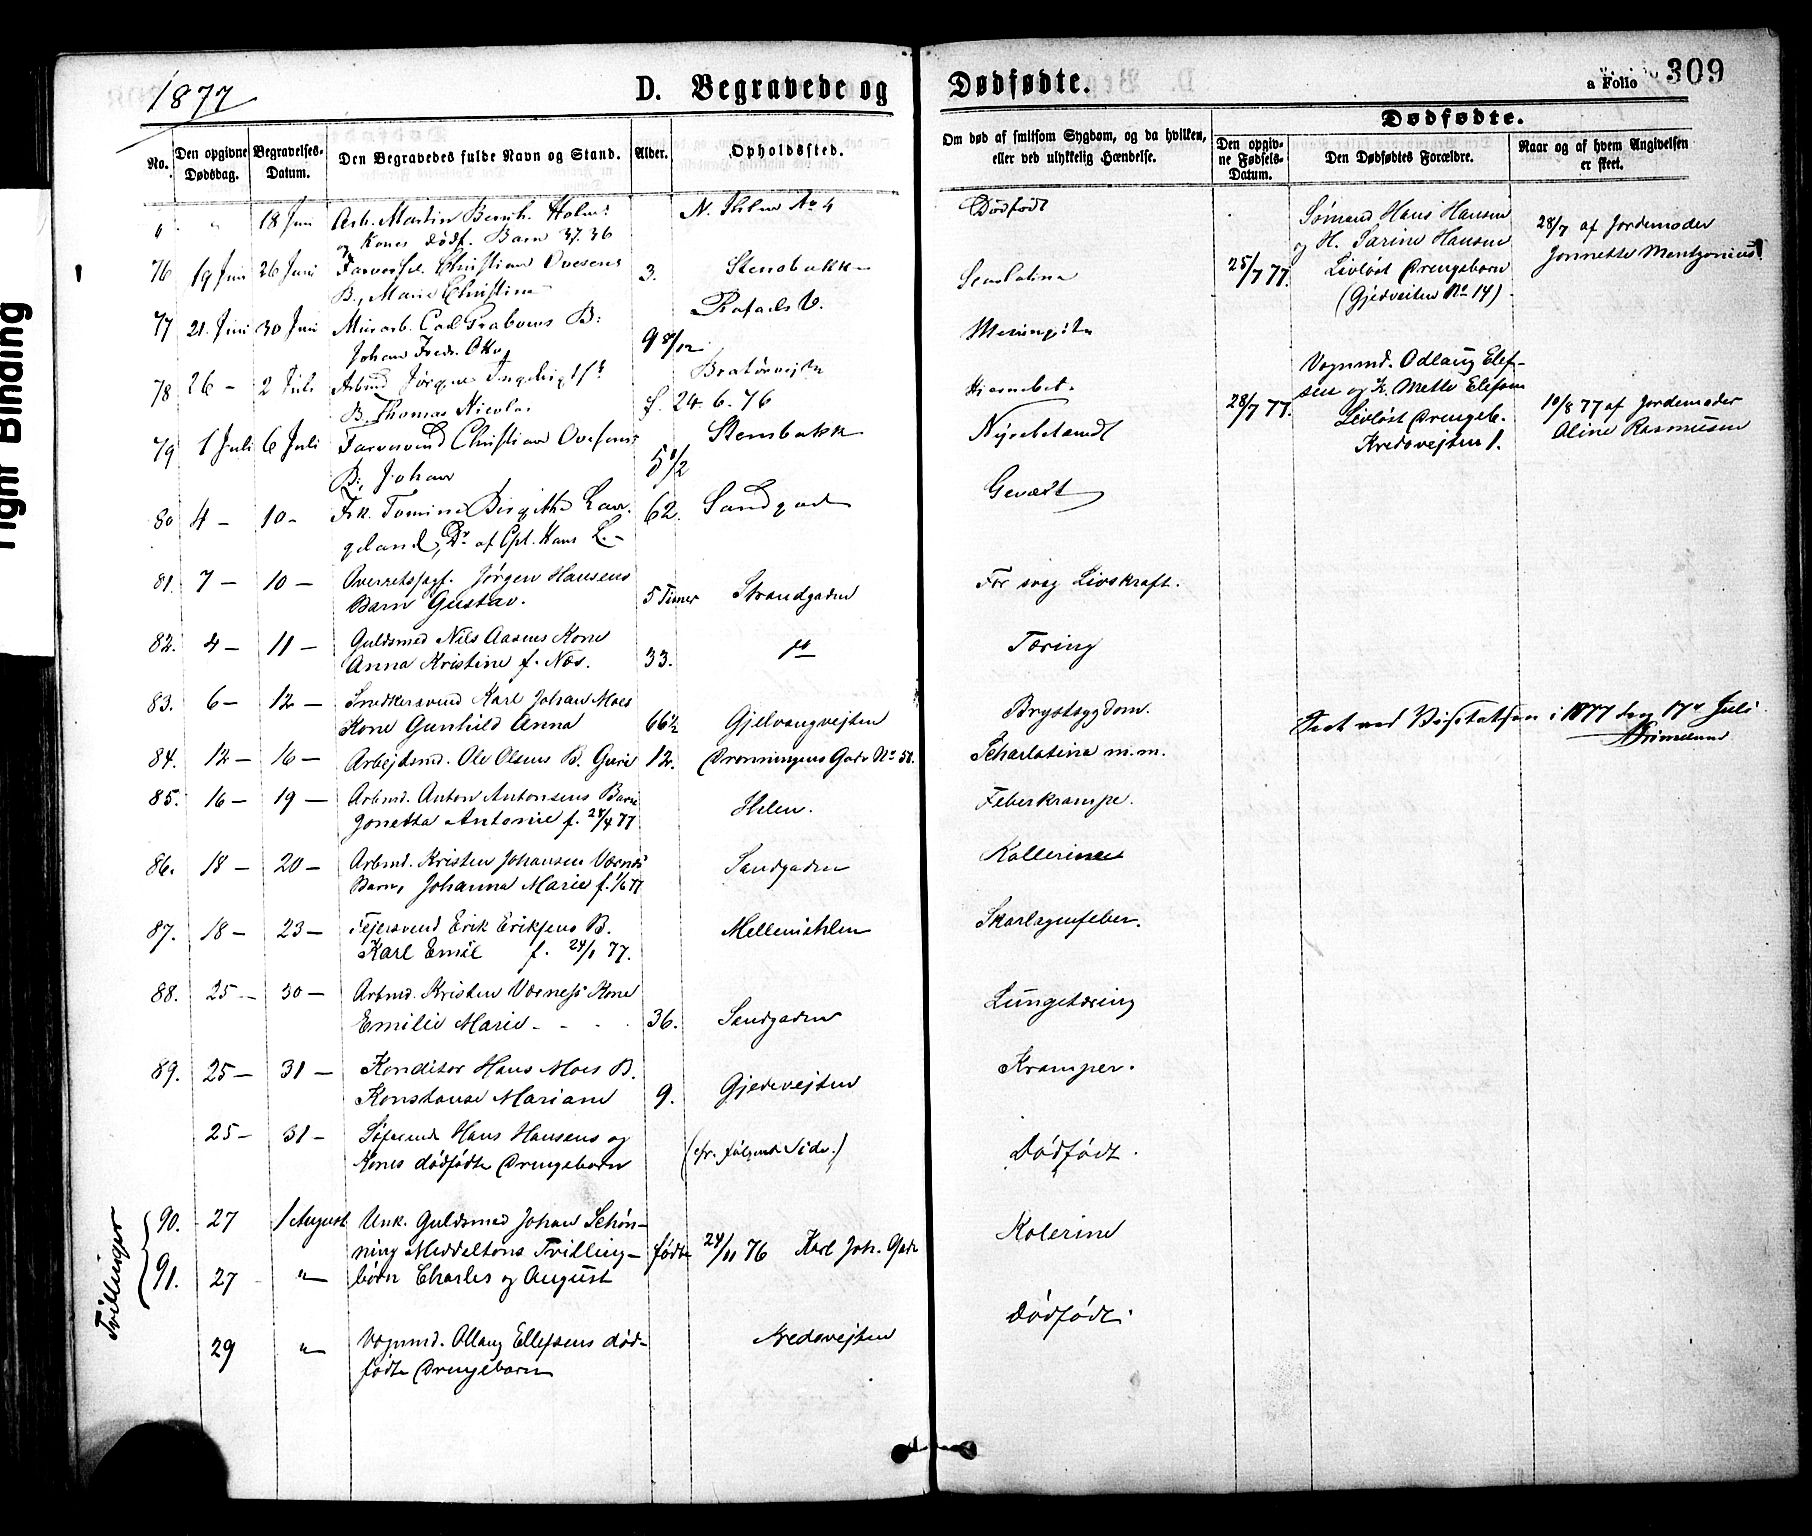 1877
D. Begravede og Dødfødte.
a Folio 309
No.
Den opgivne Dødsdag.
Begravelses-Datum.
Den Begravedes fulde Navn og Stand.
Alder.
Opholdssted.
Om død af smitsom Sygdom, og da hvilken, eller ved ulykkelig Hændelse.
Dødfødte.
Den opgivne Fødsels-Datum.
Den Dødfødtes Forældre.
Naar og af hvem Angivelsen er skeet.
" " 18 Juni Arb. Martin Bernh. Holms N. Ihlen No 4 Dødfødt
og Kones dødf. Barn 37. 36
76 19 Juni 26 Juni Farversv. Christian Ovesens 3. Stensbakk
B., Marie Christine
77 21. Juni 30 Juni Murarb. Carl B: 9 8/12
Johan Fredr.
78 26 - 2 Juli Arbmd Jørgen f. 24. 6. 76
B. Thomas Nicolai
79 1 Juli 6 Juli Farversvend Christian Ovesens 5 1/2 Stensbakk Nyrebetændt
B., Johan
80 4 - 10 - Frk. Tomine Birgitte Lan- 62. Sandgad Geväxt
geland, Dr af Cpt. Hans L. -
81. 7 - 10 - Overretssagf. Jørgen Hansens 5 Timer Strandgaden For svag Livskraft.
Barn Gustav.
82. 4 - 11 - Guldsmed Nils Aasens Kone 33. do Tæring
Anna Kristine f. Næs.
83. 6 - 12 - Snedkersvend Karl Johan Moes 66 1/2 Gjelvangvejten Brystsygdom.
Kone Gunhild Anna
84. 12 - 16 - Arbejdsmd. Ole Olsens B. Guri 12. Dronningens Gade No 58. Scharlatina m.m.
85. 16 - 19 - Arbmd. Anton Antonsens Barn Ihlen. Feberkrampe.
Jonetta Antonie f. 28/4 77
86. 18 - 20 - Arbmd. Kristen Johansen Værnes Sandgaden Kollerine
Barn, Johanna Marie f. 1/6 77
87. 18 - 23 - Fejersvend Erik Eriksens B. Mellemihlen Skarlagensfeber.
Karl Emil f. 24/1 77.
88. 25 - 30 - Arbmd. Kristen Værnes's Kone 36. Sandgaden Lungetæring
Emilie Marie -
89. 25 - 31 - Konditor Hans Moes B. 9. Gjedevejten Kramper.
Konstanse Mariane
25 - 31 - Sømand Hans Hansens og (cfr. følgende Side.) Dødfødt.
Kones dødfødte Drengebarn
Tvillinger
90. 27 1 August Unk. Guldsmed Johan Schøn- fødte 24/11 76 Karl Joh. Gade Kolerine
ning Middeltons Tvilling-
91. 27 " børn Charles og August
29 " Vognmd. Ollaug Ellefsens død- Kredsvejten Dødfødt.
fødte Drengebarn
25/7 77. Sømand Hans Hansen 28/7 af Jordemoder
og H. Sarine Hansen Jonnette Mentzonius
Livløst Drengebarn
(Gjedveiten No 14)
28/7 77. Vognmd. Odlaug Elef- 10/8 77 af Jordemoder
sen og K. Mette Elefsen Aline Rasmussen
Livløst Drengeb.
Kredsvejten 1.
Seet ved Visitatsen i 1877 den 17de Juli.
Grimelund